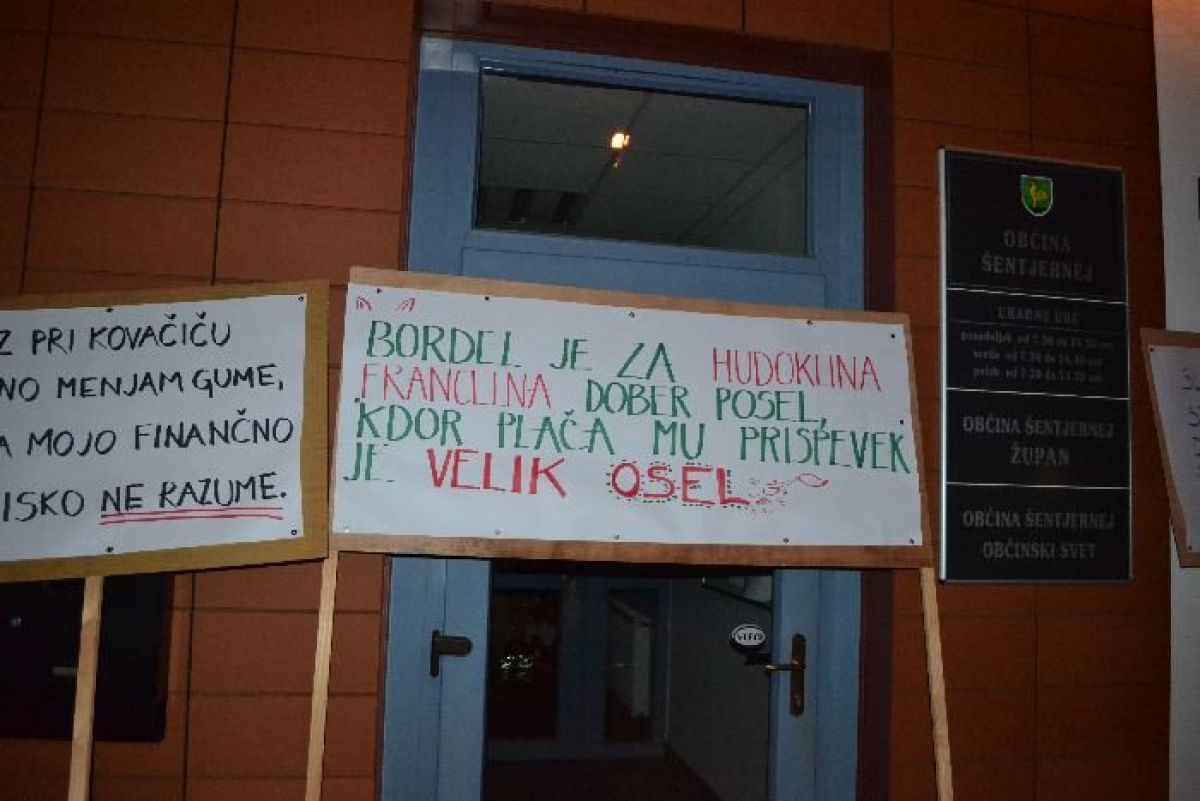 Z PRI KOVAČIČU
NO MENJAM GUME,
A MOJO FINANČNO
ISKO NE RAZUME.
BORDEL JE ZA HUDOKLINA
FRANCLINA DOBER POSEL,
KDOR PLAČA MU PRISPEVEK
JE VELIK OSEL
OBČINA
ŠENTJERNEJ
URADNE URE
ponedeljek od 7.30 do
sreda od 7.30 do
petek od 7.30 do 13.30 ure
OBČINA ŠENTJERNEJ
ŽUPAN
OBČINA ŠENTJERNEJ
OBČINSKI SVET